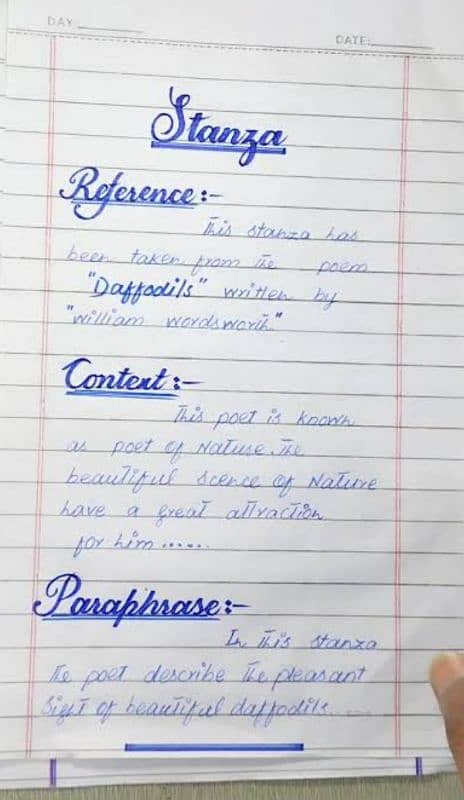 DAY
DATE:
Stanza
Reference:-
This stanza has
been taken from the poem
"Daffodils" written by
"william wordsworth"
Context:-
This poet is known
as poet of Nature. The
beautiful scence of Nature
have a great attraction
for him ......
Paraphrase:-
In this stanza
the poet describe the pleasant
Sight of beautiful daffodils.....